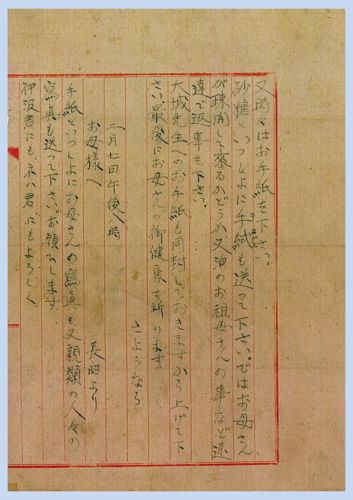 又時々はお手紙を下さい。
砂糖といつしよに手紙も送つて下さい。ではお母さん
が疎開して来るかどうか又泊のお祖母さんの事など返
達で返事を下さい。
大城先生へのお手紙も同封しておきますから上げて下
さい。最後にお母さんの御健康を祈ります
さようなら
二月七日午後八時
長昭より
お母様へ
手紙といつしよにお母さんの寫眞も又親類の人々の
寫眞も送つて下さい。お願ひします
伊波君にもネハ君にもよろしく